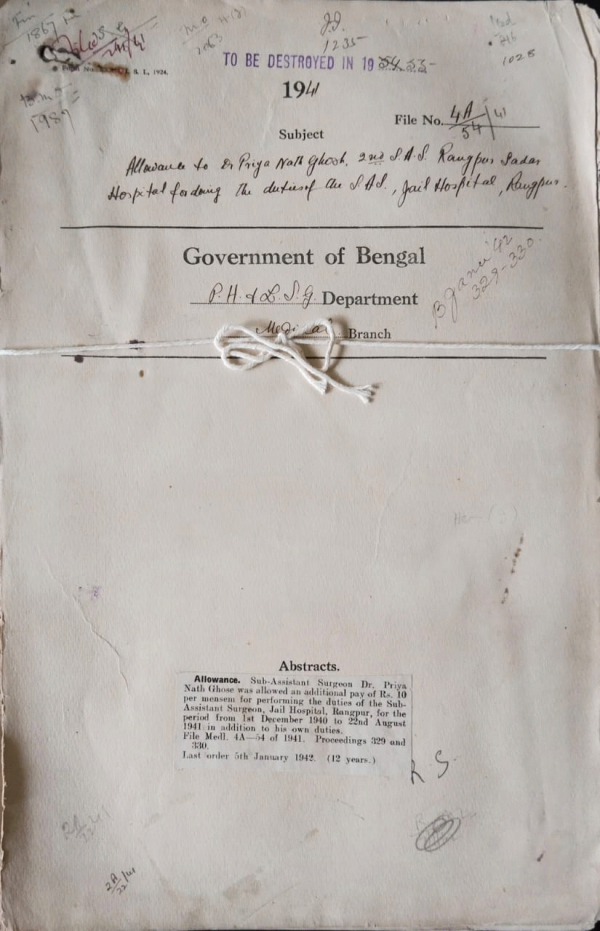 TO BE DESTROYED IN 19
1235
1028
1941
File No. 4A/54/41
Subject
Allowance to Dr Priya Nath Ghosh, 2nd S.A.S. Rangpur Sadar
Hospital for doing the duties of the S.A.S., Jail Hospital, Rangpur.
Government of Bengal
P.H. & L.S.G. Department
Medical Branch
B Janu '42
329-330.
Abstracts.
Allowance. Sub-Assistant Surgeon Dr. Priya
Nath Ghose was allowed an additional pay of Rs. 10
per mensem for performing the duties of the Sub-
Assistant Surgeon, Jail Hospital, Rangpur, for the
period from 1st December 1940 to 22nd August
1941 in addition to his own duties.
File Medl. 4A—54 of 1941. Proceedings 329 and
330.
Last order 5th January 1942. (12 years.)